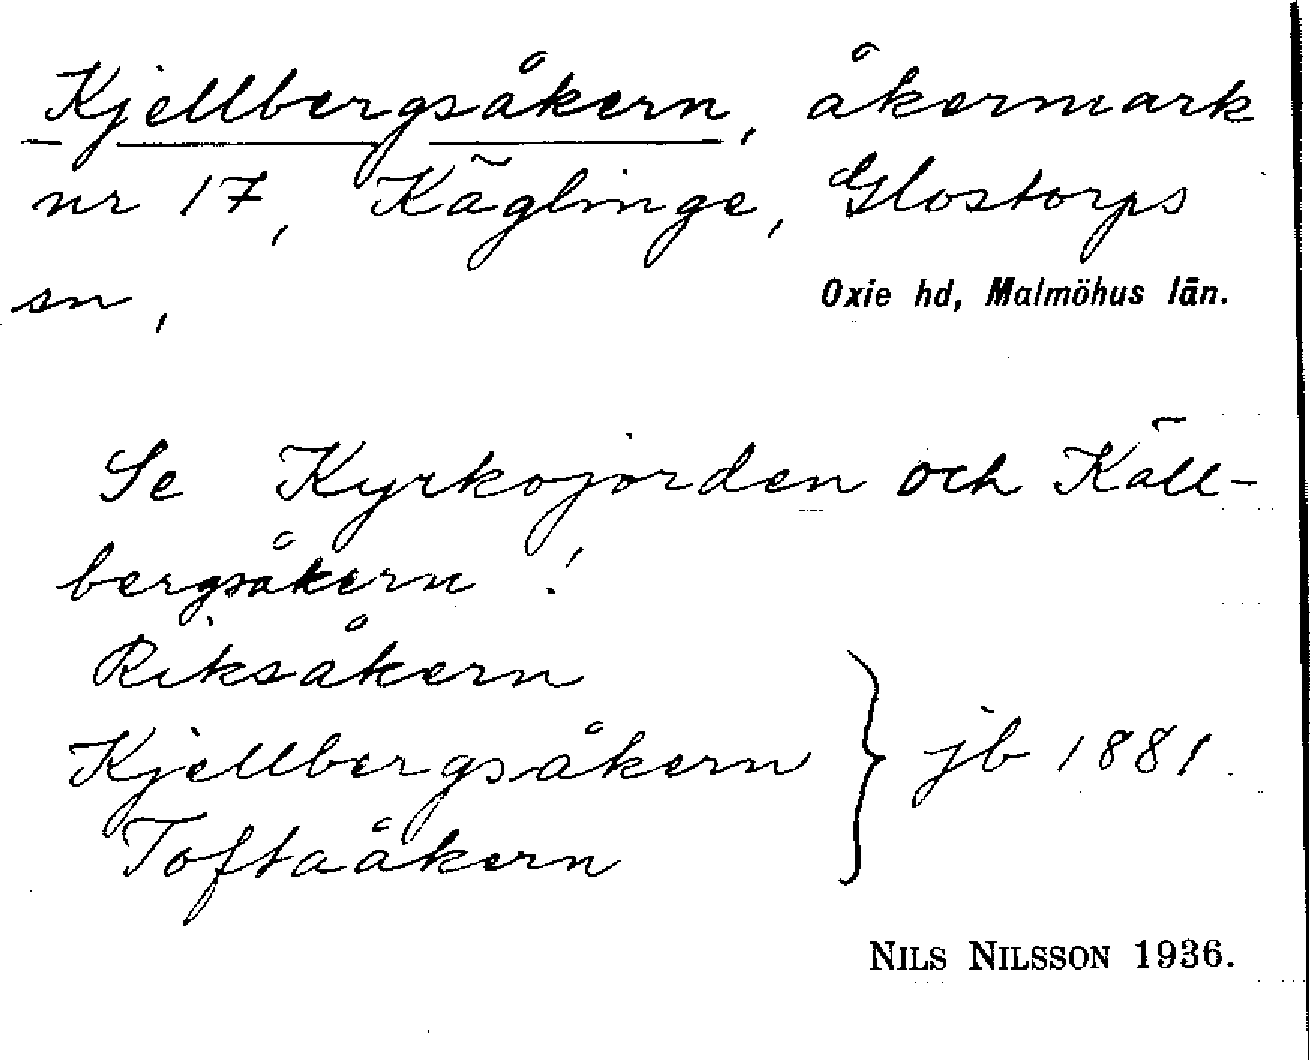 Kjellbergsåkern, åkermark
nr 17, Käglinge, Glostorps
sn,
Oxie hd, Malmöhus län.
Se Kyrkojorden och Käll-
bergsåkern!
Riksåkern
Kjellbergsåkern } jb 1881.
Toftaåkern
NILS NILSSON 1936.